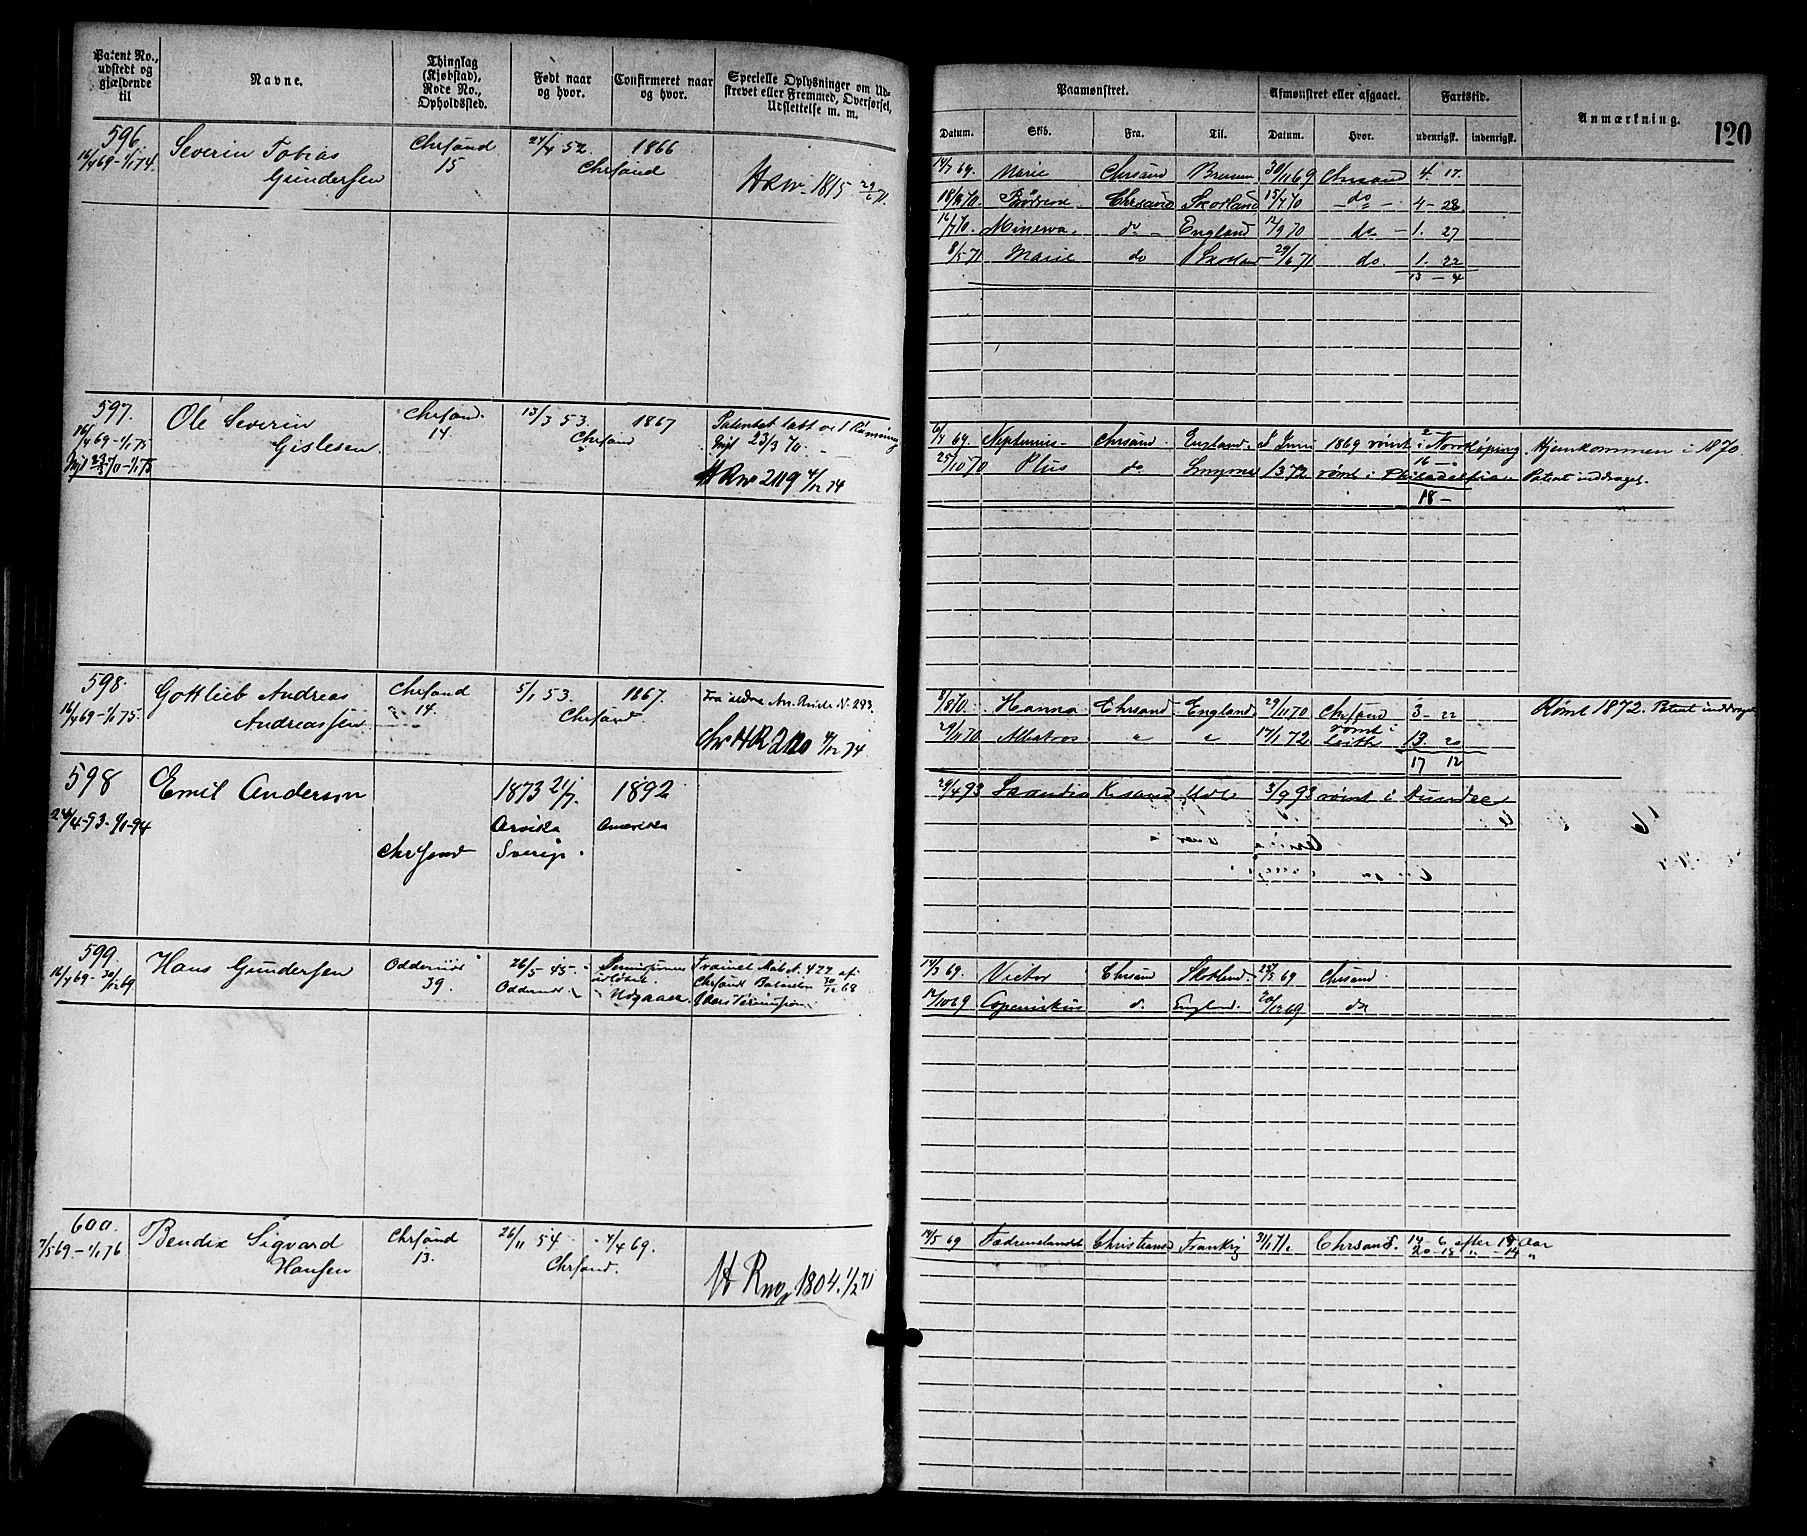 Patent No., udstedt og gjældende til
Navne.
Thinglag (Kjøbstad), Rode No., Opholdssted.
Født naar og hvor.
Confirmeret naar og hvor.
Specielle Oplysninger om Udskrevet eller Fremmed, Overførsel, Udslettelse m. m.
Paamønstret.
Afmønstret eller afgaaet.
Fartstid.
Anmærkning.
120
Datum.
Skib.
Fra.
Til.
Datum.
Hvor.
udenrigsk.
indenrigsk.
596
16/4 69-1/1 74.
Severin Tobias
Gundersen
Chrsand
15
52.
1866
Chrsand
HRno 1815 29/6 71.
14/7 69. Marie Chrsand Bremen 30/11 69 Chrsand 4 17.
Chrsand Skotland 15/7 70 do 4-28.
16/7 70. Minerva do England 12/9 70 do 1. 27
8/5 71 Marie do Skotland 29/6 71 do. 1. 22
13-4
597.
16/4 69-1/1 75
23/3 70-1/1 75
Ole Severin
Gislesen
Chrsand.
14.
13/3 53.
Chrsand
1867
Patentet tabt ved Rømning
23/3 70.
HRno 2119 4/12 74
6/4 69. Neptunus Chrsand. England. Juni 1869 rømt i Norrkøping 2 Hjemkommen i 1870
25/10 70 Plus do Smyrna 1372 rømt i Philadelphia 16 Patent inddraget.
18-
598.
16/4 69-1/1 75.
Gottlieb Andreas
Andreassen
Chrsand
14.
5/1 53.
Chrsand
1867
Fra ældre No. 293.
HR 2120 4/12 74
8/8 70. Hanna Chrsand England 29/11 70 Chrsand 3-22 Rømt 1872. Patent inddraget
29/11 70 Albatros " " 17/1 72 rømt i Leith 13. 20
17 12
598
24/4-93-1/1-94
Emil Anderson
Chrsand
1873 21/7.
Arvika
Sverige.
1892
Amerika
29/4 93 Skandia Krsand 3/9 93 rømt i Dundee
599.
16/4 69-30/12 69
Hans Gundersen
39.
26/5 45
Udgaaer.
422 af
Chrsands Bataillon
14/3 69. Victor Chrsand Skotland 69 Chrsand.
12/10 69 Copernikus d. England. 20/12 69 do
600.
7/5 69-1/1 76
Bendix Sigvard
Hansen
Chrsand
13.
26/11 54
Chrsand.
4/4 69.
HRno, 1804. 1/2 71
14/5 69 Fædrenelandet Christiansd Frankrig 31/1 71. Chrsand. 14-6 efter 15 Aar
20-15 " -14 "